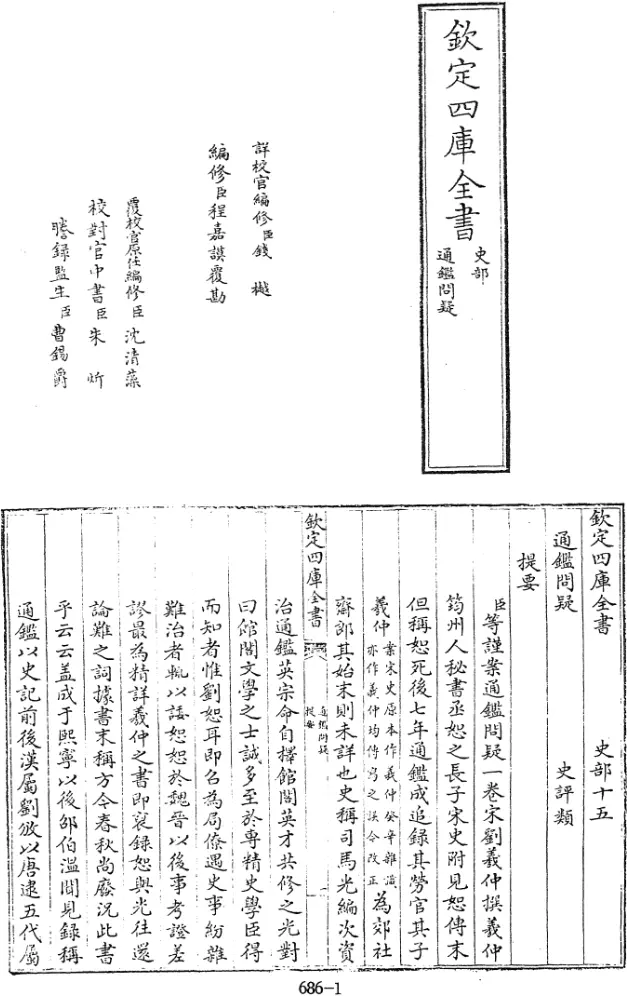 欽定四庫全書
史部
通鑑問疑
詳校官編修臣錢樾
編修臣程嘉謨覆勘
覆校官原任編修臣沈清藻
校對官中書臣朱炘
謄錄監生臣曹錫爵
欽定四庫全書 史部十五
通鑑問疑 史評類
提要
臣等謹案通鑑問疑一卷宋劉羲仲撰羲仲
筠州人秘書丞恕之長子宋史附見恕傳末
但稱恕死後七年通鑑成追錄其勞官其子
羲仲案宋史原本作義仲癸辛雜識亦作義仲均傳寫之誤今改正為郊社
齋郎其始末則未詳也史稱司馬光編次資
欽定四庫全書
通鑑問疑
提要
治通鑑英宗命自擇館閣英才共修之光對
曰館閣文學之士誠多至於專精史學臣得
而知者惟劉恕耳即召為局僚遇史事紛雜
難治者輒以諉恕恕於魏晉以後事考證差
謬最為精詳羲仲之書即裒錄恕與光往還
論難之詞據書末稱方今春秋尚廢況此書
乎云云盖成于熙寧以後邵伯溫聞見錄稱
通鑑以史記前後漢屬劉攽以唐逮五代屬
686-1